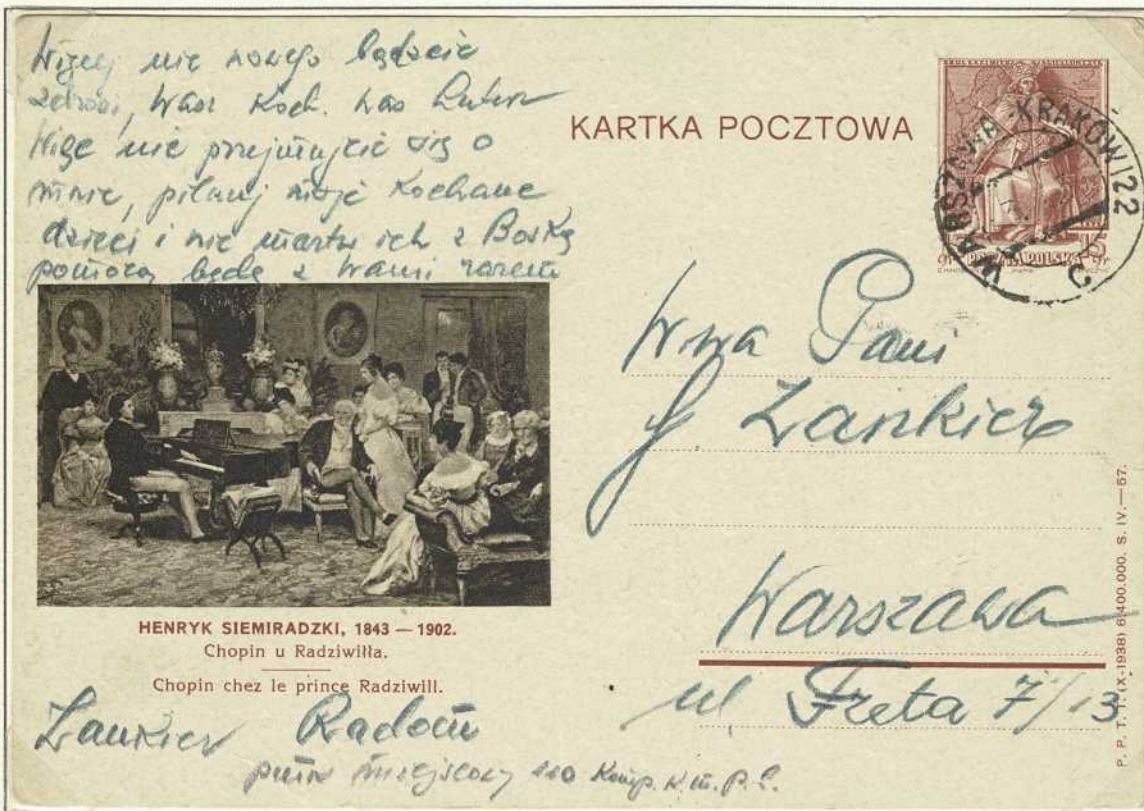 Więcej nic nowego bądźcie
zdrowi, Wasz Koch. Was
Więc nie przejmujcie się o
mnie, pilnuj moje Kochane
dzieci i nie martw ich z Boską
pomocą będę z Wami razem
KARTKA POCZTOWA
WARSZAWA - KRAKÓW 122
C
POCZTA POLSKA
15
gr gr
Wna Pani
Zankier
Warszawa
ul Freta 7/13
HENRYK SIEMIRADZKI, 1843 — 1902.
Chopin u Radziwiłła.
Chopin chez le prince Radziwill.
Zankier Radom
miejscowy Komp. K. M. P. L.
P. P. T. T. (X-1938) 6.400.000. S. IV.—57.